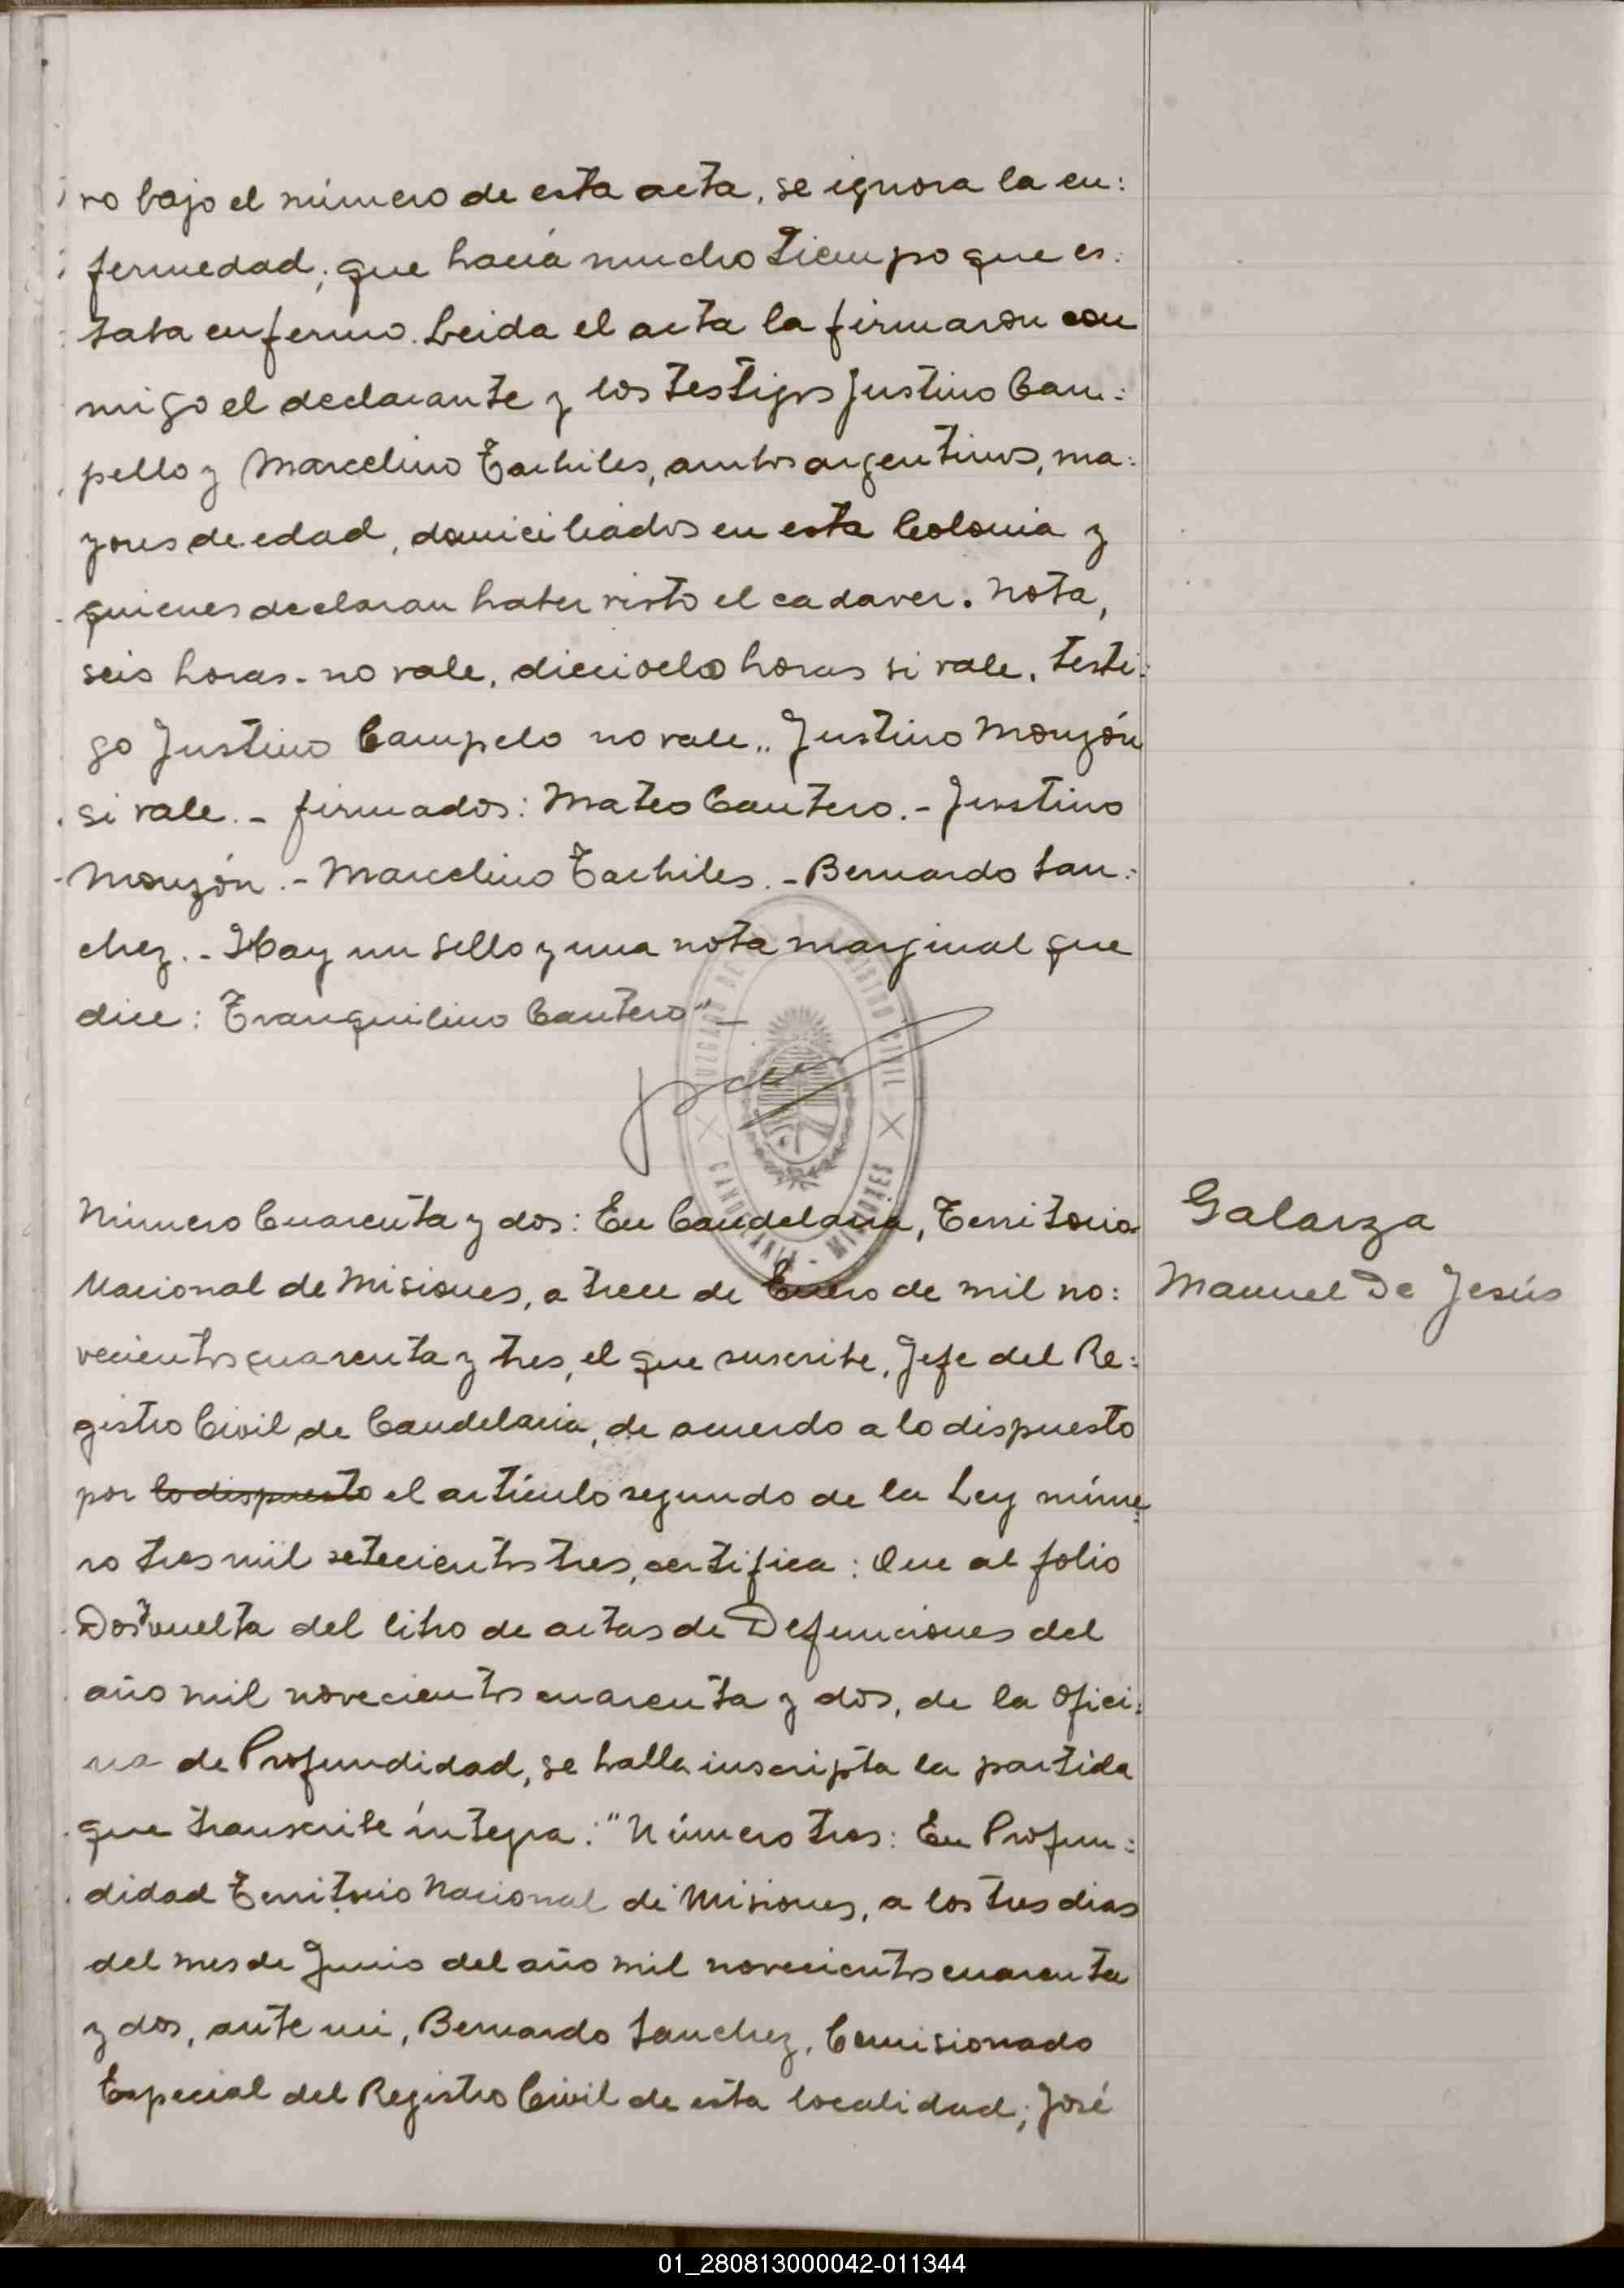 ro bajo el número de esta acta, se ignora la en:
fermedad; que hacía mucho tiempo que es:
taba enfermo. Leida el acta la firmaron con
migo el declarante y los testigos Justino Cam:
pello y Marcelino Tachiles, ambos argentinos, ma:
yores de edad, domiciliados en esta Colonia y
quienes declaran haber visto el cadaver. Nota,
seis horas - no vale, dieciocho horas si vale. testi:
go Justino Campelo no vale.. Justino Monzón
si vale. - firmados: Mateo Cantero. - Justino
Monzón. - Marcelino Tachiles. - Bernardo San:
chez. - Hay un sello y una nota marginal que
dice: Tranquilino Cantero" -
JUZGADO DE PAZ REGISTRO CIVIL
CANDELARIA - MISIONES
Número Cuarenta y dos: En Candelaria, Territorio
Nacional de Misiones, a trece de Enero de mil no:
vecientos cuarenta y tres, el que suscribe, Jefe del Re:
gistro Civil de Candelaria, de acuerdo a lo dispuesto
por lo dispuesto el artículo segundo de la Ley núme
ro tres mil setecientos tres, certifica: Que al folio
Dos vuelta del libro de actas de Defunciones del
año mil novecientos cuarenta y dos, de la Ofici:
na de Profundidad, se halla inscripta la partida
que transcribe íntegra: "Número tres: En Profun:
didad Territorio Nacional de Misiones, a los tres dias
del mes de Junio del año mil novecientos cuarenta
y dos, ante mi, Bernardo Sanchez, Comisionado
Especial del Registro Civil de esta localidad; José
Galarza
Manuel De Jesús
01_280813000042-011344